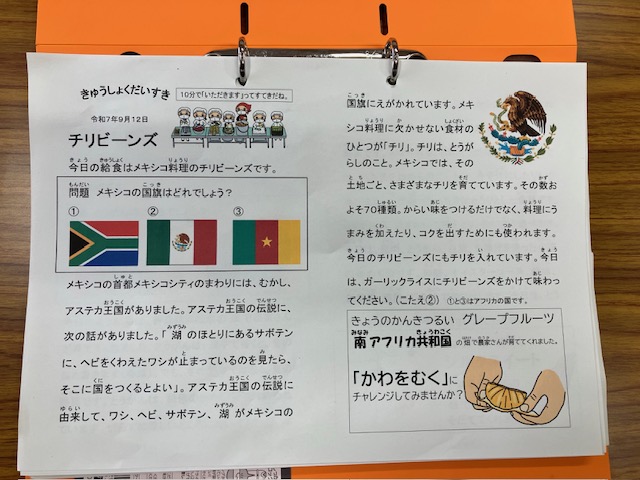 きゅうしょくだいすき
10分で「いただきます」ってすてきだね。
令和7年9月12日
チリビーンズ
今日の給食はメキシコ料理のチリビーンズです。
問題 メキシコの国旗はどれでしょう？
① ② ③
メキシコの首都メキシコシティのまわりには、むかし、
アステカ王国がありました。アステカ王国の伝説に、
次の話がありました。「湖のほとりにあるサボテン
に、ヘビをくわえたワシが止まっているのを見たら、
そこに国をつくるとよい」。アステカ王国の伝説に
由来して、ワシ、ヘビ、サボテン、湖がメキシコの
国旗にえがかれています。メキ
シコ料理に欠かせない食材の
ひとつが「チリ」。チリは、とうが
らしのこと。メキシコでは、その
土地ごと、さまざまなチリを育てています。その数お
よそ70種類。からい味をつけるだけでなく、料理にう
まみを加えたり、コクを出すためにも使われます。
今日のチリビーンズにもチリを入れています。今日
は、ガーリックライスにチリビーンズをかけて味わっ
てください。（こたえ②） ①と③はアフリカの国です。
きょうのかんきつるい グレープフルーツ
南アフリカ共和国の畑で農家さんが育ててくれました。
「かわをむく」に
チャレンジしてみませんか？